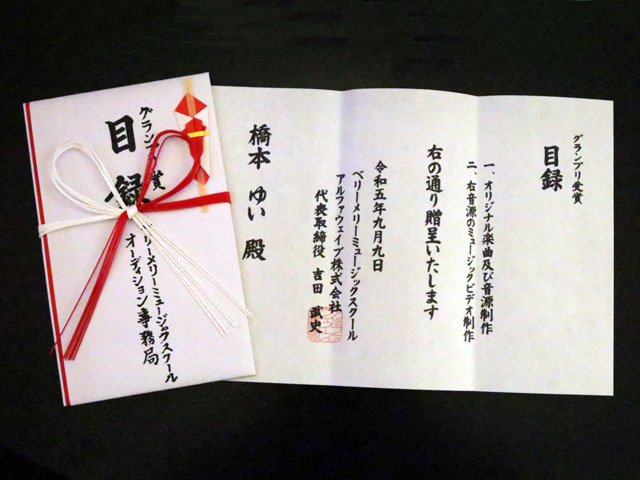 グランプリ受賞
目録
一、オリジナル楽曲及び音源制作
二、右音源のミュージックビデオ制作
右の通り贈呈いたします
令和五年九月九日
ベリーメリーミュージックスクール
アルファウェイブ株式会社
代表取締役 吉田 武史
橋本 ゆい 殿
グランプリ賞
目録
リーメリーミュージックスクール
オーディション事務局